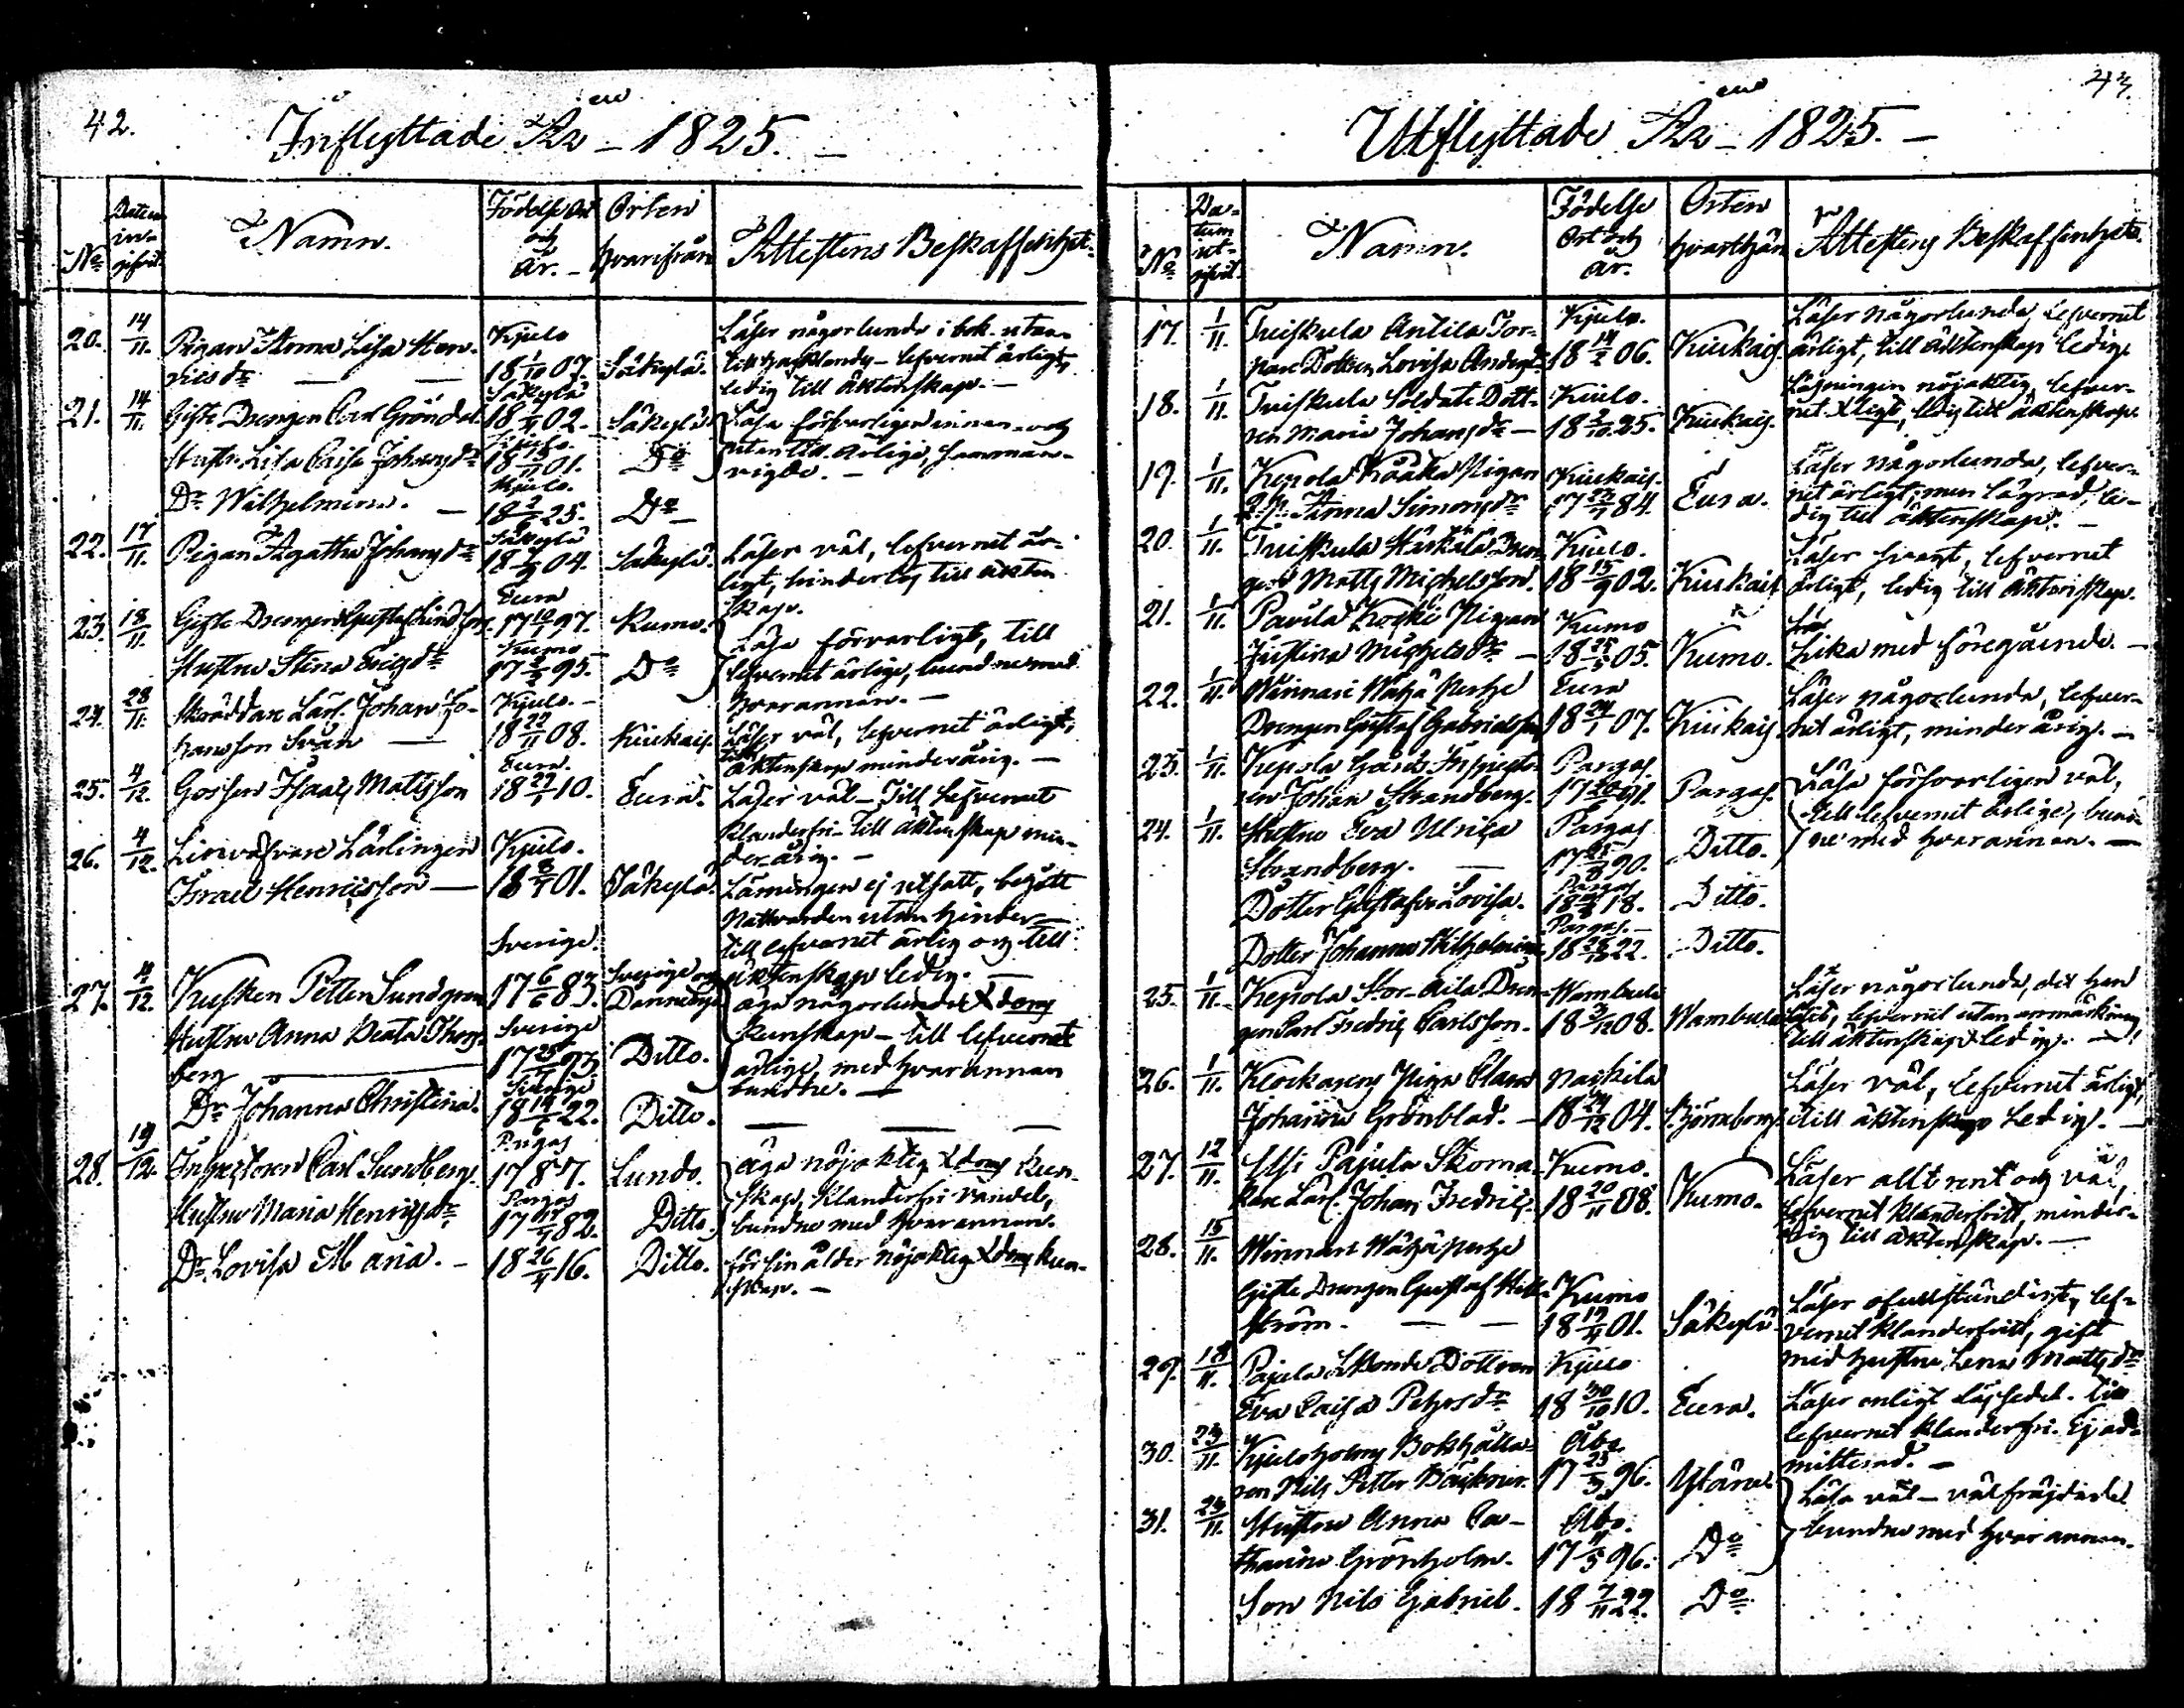 42.
Inflyttade År 1825.
No
Datum in-
skrift.
Namn.
Födelse Ort
och
år.
Orten
hvarifrån
Attestens Beskaffenhet.
20.
14/11.
Pigan Anna Lisa Hen-
ricsdr
Kjulo
18 1/10 07.
Säkylä.
Läser någorlunda i bok. utan-
lefvernet ärligt,
ledig till äktenskap.
21.
14/11.
Gifte Drengen Carl Gröndal.
Säkylä
18 02.
Säkylä
Läsa försvarligen innan och
Hustr. Lisa Caisa Johansdr
Kjulo.
18 01.
Do
utantill. Ärlige, samman-
vigde.
Dr Wilhelmina.
Kjulo.
18 25.
Do
22.
17/11.
Pigan Agatha Johansdr
Säkylä
18 04.
Säkylä.
Läser väl, lefvernet är-
ligt, hinderlös till äkten
skap.
23.
18/11.
Gifte Drengen Gustaf Lindfors.
Eura
17 97.
Kumo.
Läsa försvarligt, till
Hustru Stina Ericsdr
Kumo
17 95.
Do
lefvernet ärlige, bundne med
hvarannan.
24.
28/11.
Skräddare Lärl. Johan Jo-
hansson Svan
Kjulo.
18 22/11 08.
Kiukais.
Läser väl, lefvernet ärligt,
till äktenskap minderårig.
25.
4/12.
Gossen Isaac Mattsson
Eura.
18 10.
Eura.
Läser väl - Till Lefvernet
Klanderfri - till äktenskap min-
derårig.
26.
4/12.
Linväfvare Lärlingen
Israel Henricsson
Kjulo.
18 01.
Säkylä.
Läsningen ej utsatt, begått
Nattvarden utan hinder
till lefvernet ärlig och till
äktenskap ledig.
27.
/12
Kusken Petter Sundgren
Sverige.
17 6/6 83.
Sverige och
äga någorlunda Xdoms
Hustru Anna Beata Thors-
berg
Sverige
17 93.
Ditto.
Kunskap - till lefvernet
ärlige, med hvarannan
bundne.
Dr Johanna Christina.
Sverige
18 22.
Ditto.
28.
19/12.
Inspectoren Carl Sundberg.
Pargas
1787.
Lundo.
äga nöjaktig Xdoms kun-
skap, Klanderfri vandel,
Hustru Maria Henricsdr
Pargas
17 82.
Ditto.
bundne med hvarannan.
Dr Lovisa Maria.
18 26/4 16.
Ditto.
för sin ålder nöjaktig Xdoms kun-
skap.
43.
Utflyttade År 1825.
No
Da-
tum
ut-
skrift.
Namn.
Födelse
Ort och
år.
Orten
hvarthän
Attestens Beskaffenhet.
17.
1/11.
Tuiskula Antila Tor-
pare Dottren Lovisa Andersdr
Kjulo.
18 06.
Kiukais.
Läser någorlunda, Lefvernet
ärligt, till äktenskap ledig.
18.
1/11.
Tuiskula Soldats Dott-
ren Maria Johansdr
Kjulo.
18 25.
Kiukais.
Läsningen nöjaktig, lefver-
net Xligt, ledig till äktenskap.
19.
1/11.
Kepola Kaaka Pigan
Anna Simonsdr
Kiukais.
17 84.
Eura.
Läser någorlunda, lefver-
net ärligt, men lägrad, le-
dig till äktenskap.
20.
1/11.
Tuiskula Härkälä Dren-
gen Matts Michelsson.
Kjulo.
18 15/9 02.
Kiukais
Läser svagt, lefvernet
ärligt, ledig till äktenskap.
21.
1/11.
Pavila Koski Pigan
Justina Michelsdr
Kumo
18 05.
Kumo.
Lika med föregående.
22.
1/11.
Winnari Wähä Pertje
Drengen Gustaf Gabrielsson
Eura
18 24/1 07.
Kiukais.
Läser någorlunda, lefver-
net ärligt, minderårig.
23.
1/11.
Kepola Gårds Inspecto-
ren Johan Strandberg.
Pargas
17 91.
Pargas.
Läsa försvarligen väl,
till lefvernet ärlige, bund-
24.
1/11.
Hustru Eva Ulrica
Strandberg.
Pargas
17 90.
Ditto.
ne med hvarannan.
Dotter Gustafva Lovisa.
Pargas
18 18.
Ditto.
Dotter Johanna Wilhelmina
Pargas.
18 22.
Ditto.
25.
1/11.
Kepola Stor-Aila Dren-
gen Carl Fredric Carlsson.
Wambula
18 3/12 08.
Wambula
Läser någorlunda, det han
lärt, lefvernet utan anmärkning
till äktenskap ledig.
26.
1/11.
Klockarens Piga Clara
Johanna Grönblad.
Naskila
18 24/12 04.
Björneborg.
Läser väl, Lefvernet ärligt,
till äktenskap ledig.
27.
12/11.
Elsi Pajula Skoma-
kare Lärl. Johan Fredric.
Kumo.
18 20/11 08.
Kumo.
Läser allt rent och väl,
Lefvernet Klanderfritt, minder-
årig till äktenskap.
28.
15/11.
Winnari Wähäpertje
Gifte Drengen Gustaf Hell-
ström.
Kumo
18 19/4 01.
Säkylä
Läser ofullständigt, lef-
vernet klanderfritt, gift
med hustru Lena Mattsdr
29.
18/11.
Pajula Dottren
Eva Caisa Petersdr
Kjulo
18 30/10 10.
Eura.
Läser enligt lässedel. till
lefvernet klanderfri. Ej ad-
mitterad.
30.
23/11.
Kjuloholms Bokhålla-
ren Nils Petter Bäckvar.
Åbo.
17 23/3 96.
Yläne
Läsa väl - välfräjdade
31.
23/11.
Hustru Anna Ca-
tharina Grönholm.
Åbo.
17 96.
Do
bundne med hvarannan.
Son Nils Gabriel.
18 7/11 22.
Do